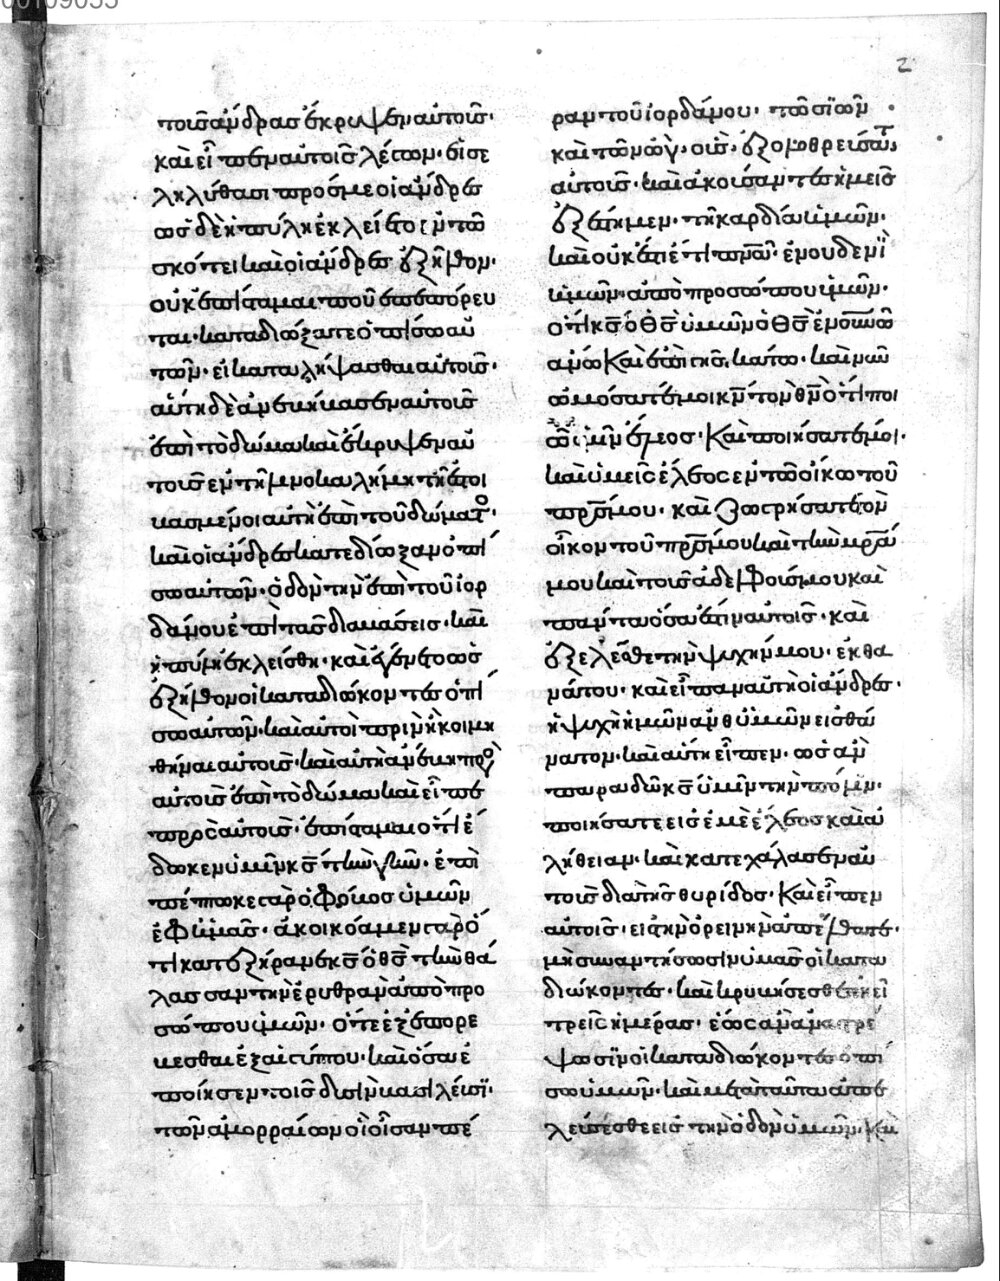 τοὺς ἄνδρας ἔκρυψεν αὐτούς·
καὶ εἶπεν αὐτοῖς λέγων· εἰσε
ληλύθασι πρός με οἱ ἄνδρες
ὡς δὲ ἡ πύλη ἐκλείετο ἐν τῶ
σκότει καὶ οἱ ἄνδρες ἐξῆλθον·
οὐκ ἐπίσταμαι ποῦ πεπόρευ
ται· καταδιώξατε ὀπίσω αὐ
τῶν· εἰ καταλήψεσθαι αὐτούς·
αὐτὴ δὲ ἀνεβίβασεν αὐτοὺς
ἐπὶ τὸ δῶμα καὶ ἔκρυψεν αὐ
τοὺς ἐν τῆ λινοκαλάμη τῆ ἐστοι
βασμένοι αὐτῆ ἐπὶ τοῦ δώματο·
καὶ οἱ ἄνδρες κατεδίωξαν ὀπί
σω αὐτῶν· ὁδὸν τὴν ἐπὶ τοῦ ἰορ
δάνου ἐπὶ τὰς διαβάσεις· καὶ
ἡ πύλη ἐκλείσθη· καὶ ἐγένετο ὡς
ἐξήλθον οἱ καταδιώκοντες ὀπί
σω αὐτῶν· καὶ αὐτοὶ πρινὴ κοιμη
θῆναι αὐτούς· καὶ αὐτὴ ἀνέβη πρὸ
αὐτοὺς ἐπὶ τὸ δῶμα καὶ εἶπε
πρὸς αὐτούς· ἐπίσταμαι ὅτι ἔ
δωκεν ὑμῖν κ̅ς̅ τὴν γῆν· ἐπι
πέπτωκε γὰρ ὁ φόβος ὑμῶν
ἐφ ἡμᾶς· ἀκηκόαμεν γὰρ ὅ
τι κατεξήρανε κ̅ς̅ ὁ θ̅ς̅ τὴν θά
λασσαν τὴν ἐρυθρὰν ἀπὸ προ
σώπου ὑμῶν· ὅτε ἐξεπορε
ύεσθαι ἐξ αἰγύπτου· καὶ ὅσα ἐ
ποίησεν τοῖς δυσὶ βασιλεῦσϊ·
τῶν ἀμορραίων οἳ ἦσαν πέ
ραν τοῦ ἰορδάνου· τῶ σϊὼν
καὶ τῶ ὢγ· οὓς ἐξολοθρεύσατε
αὐτούς· καὶ ἀκούσαντες ἡμεῖς
ἐξέστημεν τῆ καρδία ἡμῶν·
καὶ οὐκ ἔστι ἔτι πν̅α̅· ἐν οὐδενὶ
ἡμῶν· ἀπὸ προσώπου ὑμῶν·
ὅτι κ̅ς̅ ὁ θ̅ς̅ ὑμῶν ὁ θ̅ς̅ ἐν οὐνῶ
ἄνω καὶ ἐπὶ τῆς γῆς κάτω· καὶ νῦν
ὀμόσατέ μοι κ̅ν̅ τὸν θ̅ν̅ ὅτι ποι
ῶ ὑμῖν ἔλεος· καὶ ποιήσατέ μοι·
καὶ ὑμεῖς ἔλεος ἐν τῶ οἴκω τοῦ
π̅ρ̅ς̅ μου· καὶ ζωγρήσατε τὸν
οἶκον τοῦ π̅ρ̅ς̅ μου καὶ τὴν μ̅ρ̅α̅
μου καὶ τοὺς ἀδελφούς μου καὶ
πάντα ὅσα ἐστὶν αὐτοῖς· καὶ
ἐξελεῖσθε τὴν ψυχήν μου· ἐκ θα
νάτου· καὶ εἶπαν αὐτῆ οἱ ἄνδρες·
ἡ ψυχὴ ἡμῶν ἀνθ ὑμῶν εἰς θά
νατον· καὶ αὐτὴ εἶπεν· ὡς ἂν
παραδῶ κ̅ς̅ ὑμῖν τὴν πόλιν·
ποιήσατε εἰς ἐμὲ ἔλεος καὶ ἀ
λήθειαν· καὶ κατεχάλασεν αὐ
τοὺς διὰ τῆς θυρίδος· καὶ εἶπεν
αὐτοῖς· εἰς τὴν ὀρεινὴν ἀπέλθατε·
μὴ συναντήσωσιν ὑμᾶς οἱ κατα
διώκοντες· καὶ κρυβήσεσθε ἐκεῖ
τρεῖς ἡμέρας· ἕως ἂν ἀναστρέ
ψωσϊν οἱ καταδιώκοντες ὀπί
σω ὑμῶν· καὶ μετὰ ταῦτα ἀπε
λεύσεσθε εἰς τὴν ὁδὸν ὑμῶν· καὶ